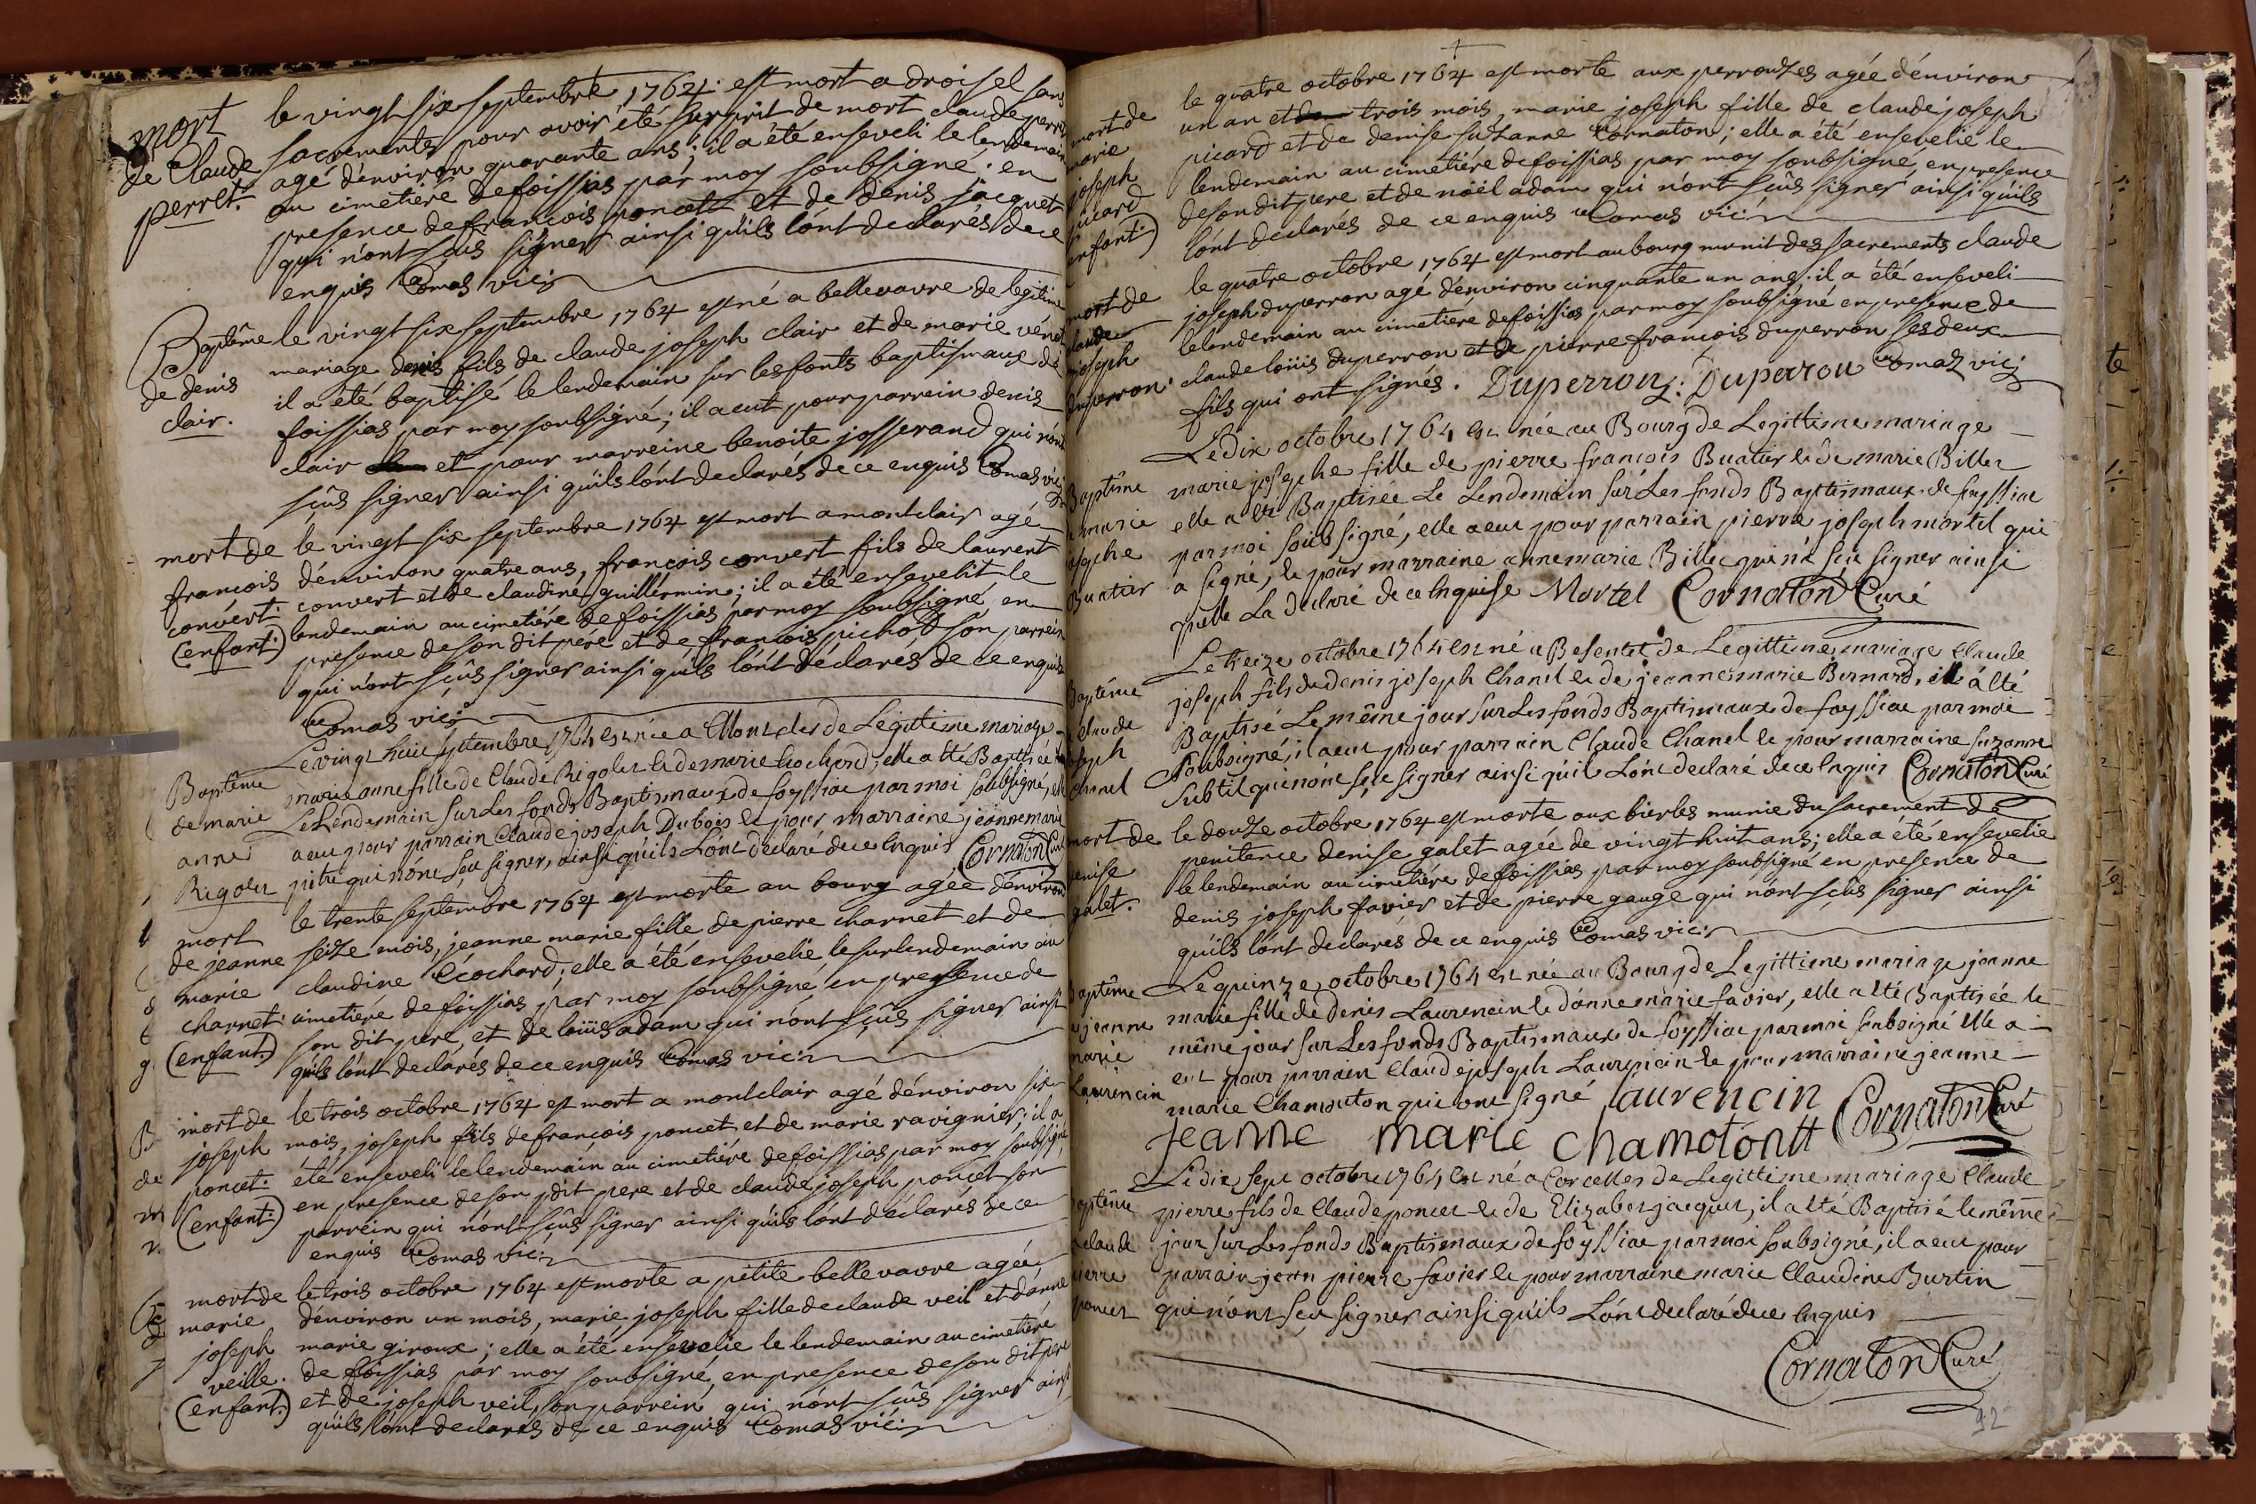 mort
de Claude
perret.
le vingt six septembre 1764 est mort a droisel sans
sacrements pour avoir été surprit de mort claude perret
agé d'environ quarante ans; il a été enseveli le lendemain
au cimetiére de foissias par moy soubsigné, en
presence de françois poncet et de denis jacquet
qui n'ont sçûs signer ainsi qu'ils l'ont declarés de ce
enquis Comas vic:
Baptême
de denis
clair.
le vingt six septembre 1764 est né a bellevavre de legitime
mariage denis fils de claude joseph clair et de marie
il a été baptisé le lendemain sur les fonts baptismaux de
foissias par moy soubsigné; il a eut pour parrein denis
clair et pour marreine benoite josserand qui n'ont
sçûs signer ainsi qu'ils l'ont declarés de ce enquis Comas vic:
mort de
françois
convért.
(enfant.)
le vingt six septembre 1764 est mort a montclair agé
d'environ quatre ans, françois convert fils de laurent
convert et de claudine guillermin; il a été ensevelit le
lendemain au cimetiére de foissias par moy soubsigné, en
presence de son dit pére et de françois pichod son parrein
qui n'ont sçûs signer ainsi qu'ils l'ont déclarés de ce enquis
Comas vic:
Baptême
de marie
anne
Rigolet
Le vingt huit septembre 1764 est née a Montcler de Legittime mariage
marie anne fille de Claude Rigolet et de marie Cochard, elle a été Baptisée
Le Lendemain sur Les fonds Baptismaux de foyssiac par moi soubsigné, elle
a eu pour parrain Claude joseph Dubois et pour marraine jeanne marie
pitre qui n'ont sçu signer, ainsi qu'ils L'ont declaré de ce Enquis Cornaton Curé
mort
de jeanne
marie
charnet.
(enfant.)
le trente septembre 1764 est morte au bourg agée d'environ
seize mois, jeanne marie fille de pierre charnet et de
claudine Ecochard; elle a été ensevelie le surlendemain au
cimetiére de foissias par moy soubsigné en presence de
son dit pere, et de loüis adam qui n'ont sçûs signer ainsi
qu'ils l'ont declarés de ce enquis Comas vic:
mort de
joseph
poncet.
(enfant.)
le trois octobre 1764 est mort a montclair agé d'environ six
mois, joseph fils de françois poncet et de marie ravignier; il a
été enseveli le lendemain au cimetiére de foissias par moy soubsigné,
en presence de son dit pere et de claude joseph poncet son
parrein qui n'ont sçûs signer ainsi qu'ils l'ont déclarés de ce
enquis Comas vic:
mort de
marie
joseph
veille.
(enfant.)
le trois octobre 1764 est morte a petite bellevavre agée
d'environ un mois, marie joseph fille de claude veil et d'anne
marie giroux; elle a été ensevelie le lendemain au cimetiére
de foissias par moy soubsigné, en presence de son dit pere
et de joseph veil, son parrein qui n'ont sçûs signer ainsi
qu'ils l'ont declarés de ce enquis Comas vic:
mort de
marie
joseph
picard
enfant.)
le quatre octobre 1764 est morte aux perrouzes agée d'environ
un an et trois mois, marie joseph fille de claude joseph
picard et de denise suzanne Cornaton; elle a été ensevelie le
lendemain au cimetiére de foissias par moy soubsigné, en presence
de son dit pere et de nöel adam qui n'ont sçûs signer ainsi qu'ils
l'ont declarés de ce enquis Comas vic:
mort de
claude
joseph
duperron.
le quatre octobre 1764 est mort au bourg munit des sacrements claude
joseph duperron agé d'environ cinquante un ans; il a été enseveli
le lendemain au cimetiére de foissias par moy soubsigné en presence de
claude loüis duperron et de pierre françois duperron ses deux
fils qui ont signés. Duperron. Duperron Comas vic:
Baptême
marie
josephe
Buatier
Le dix octobre 1764 est née au Bourg de Legittime mariage
marie josephe fille de pierre françois Buatier et de marie Billet
elle a été Baptisée Le Lendemain sur Les fonds Baptismaux de foyssiac
par moi soûbsigné, elle a eu pour parrain pierre joseph mortel qui
a signé, et pour marraine anne marie Billet qui n'a sçu signer ainsi
qu'elle La declaré de ce Enquise Mortel Cornaton Curé
Baptême
claude
joseph
chanel
Le treize octobre 1764 est né a Besentet de Legittime mariage Claude
joseph fils de denis joseph Chanel et de jeanne marie Bernard, il a été
Baptisé Le même jour sur Les fonds Baptismaux de foyssiac par moi
soubsigné, il a eu pour parrain Claude Chanel et pour marraine suzanne
Subtil qui n'ont sçu signer ainsi qu'ils L'ont declaré de ce Enquis Cornaton Curé
mort de
denise
galet.
le douze octobre 1764 est morte aux bierles munie du sacrement de
penitence denise galet agée de vingt huit ans; elle a été ensevelie
le lendemain au cimetiére de foissias par moy soubsigné en presence de
denis joseph favier et de pierre gauge qui n'ont sçûs signer ainsi
qu'ils l'ont declarés de ce enquis Comas vic:
Baptême
jeanne
marie
Laurencin
Le quinze octobre 1764 est née au Bourg de Legittime mariage jeanne
marie fille de denis Laurencin et d'anne marie favier, elle a été Baptisée le
même jour sur Les fonds Baptismaux de foyssiac par moi soubsigné elle a
eu pour parrain Claude joseph Laurencin et pour marraine jeanne
marie Chamouton qui ont signé Laurencin
jeanne marie chamotontt Cornaton Curé
Baptême
claude
pierre
poncet
Le dix sept octobre 1764 est né a Corcelles de Legittime mariage Claude
pierre fils de Claude poncet et de Elizabet jacquet, il a été Baptisé le même
jour sur Les fonds Baptismaux de foÿssiac par moi soubsigné, il a eu pour
parrain jean pierre favier et pour marraine marie Claudine Burtin
qui n'ont sçu signer ainsi qu'ils L'ont declaré de ce Enquis
Cornaton Curé
92